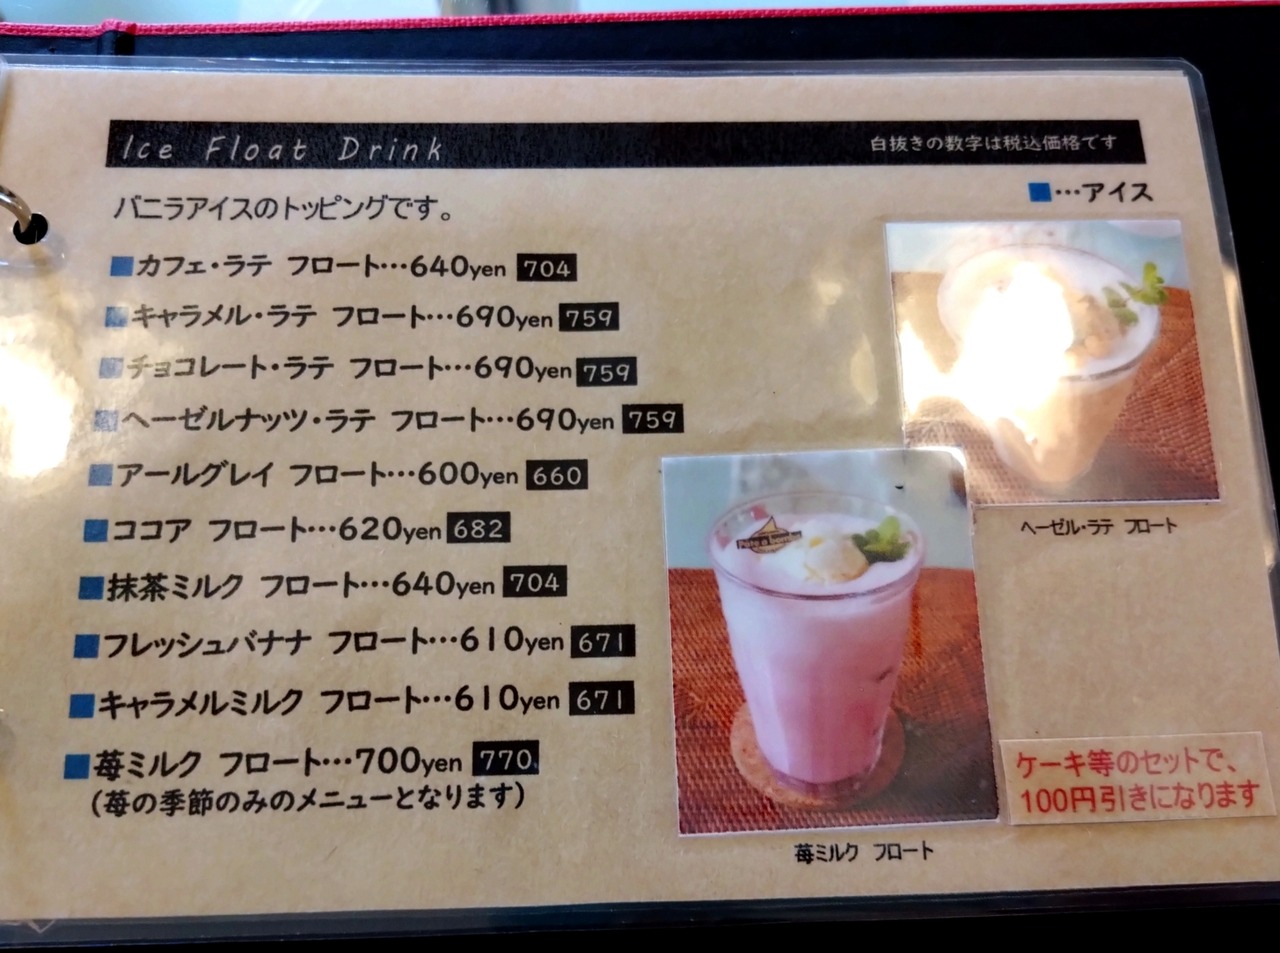 Ice Float Drink
白抜きの数字は税込価格です
■…アイス
バニラアイスのトッピングです。
■カフェ・ラテ フロート…640yen 704
■キャラメル・ラテ フロート…690yen 759
■チョコレート・ラテ フロート…690yen 759
■ヘーゼルナッツ・ラテ フロート…690yen 759
■アールグレイ フロート…600yen 660
■ココア フロート…620yen 682
■抹茶ミルク フロート…640yen 704
■フレッシュバナナ フロート…610yen 671
■キャラメルミルク フロート…610yen 671
■苺ミルク フロート…700yen 770
(苺の季節のみのメニューとなります)
ヘーゼル・ラテ フロート
苺ミルク フロート
ケーキ等のセットで、
100円引きになります